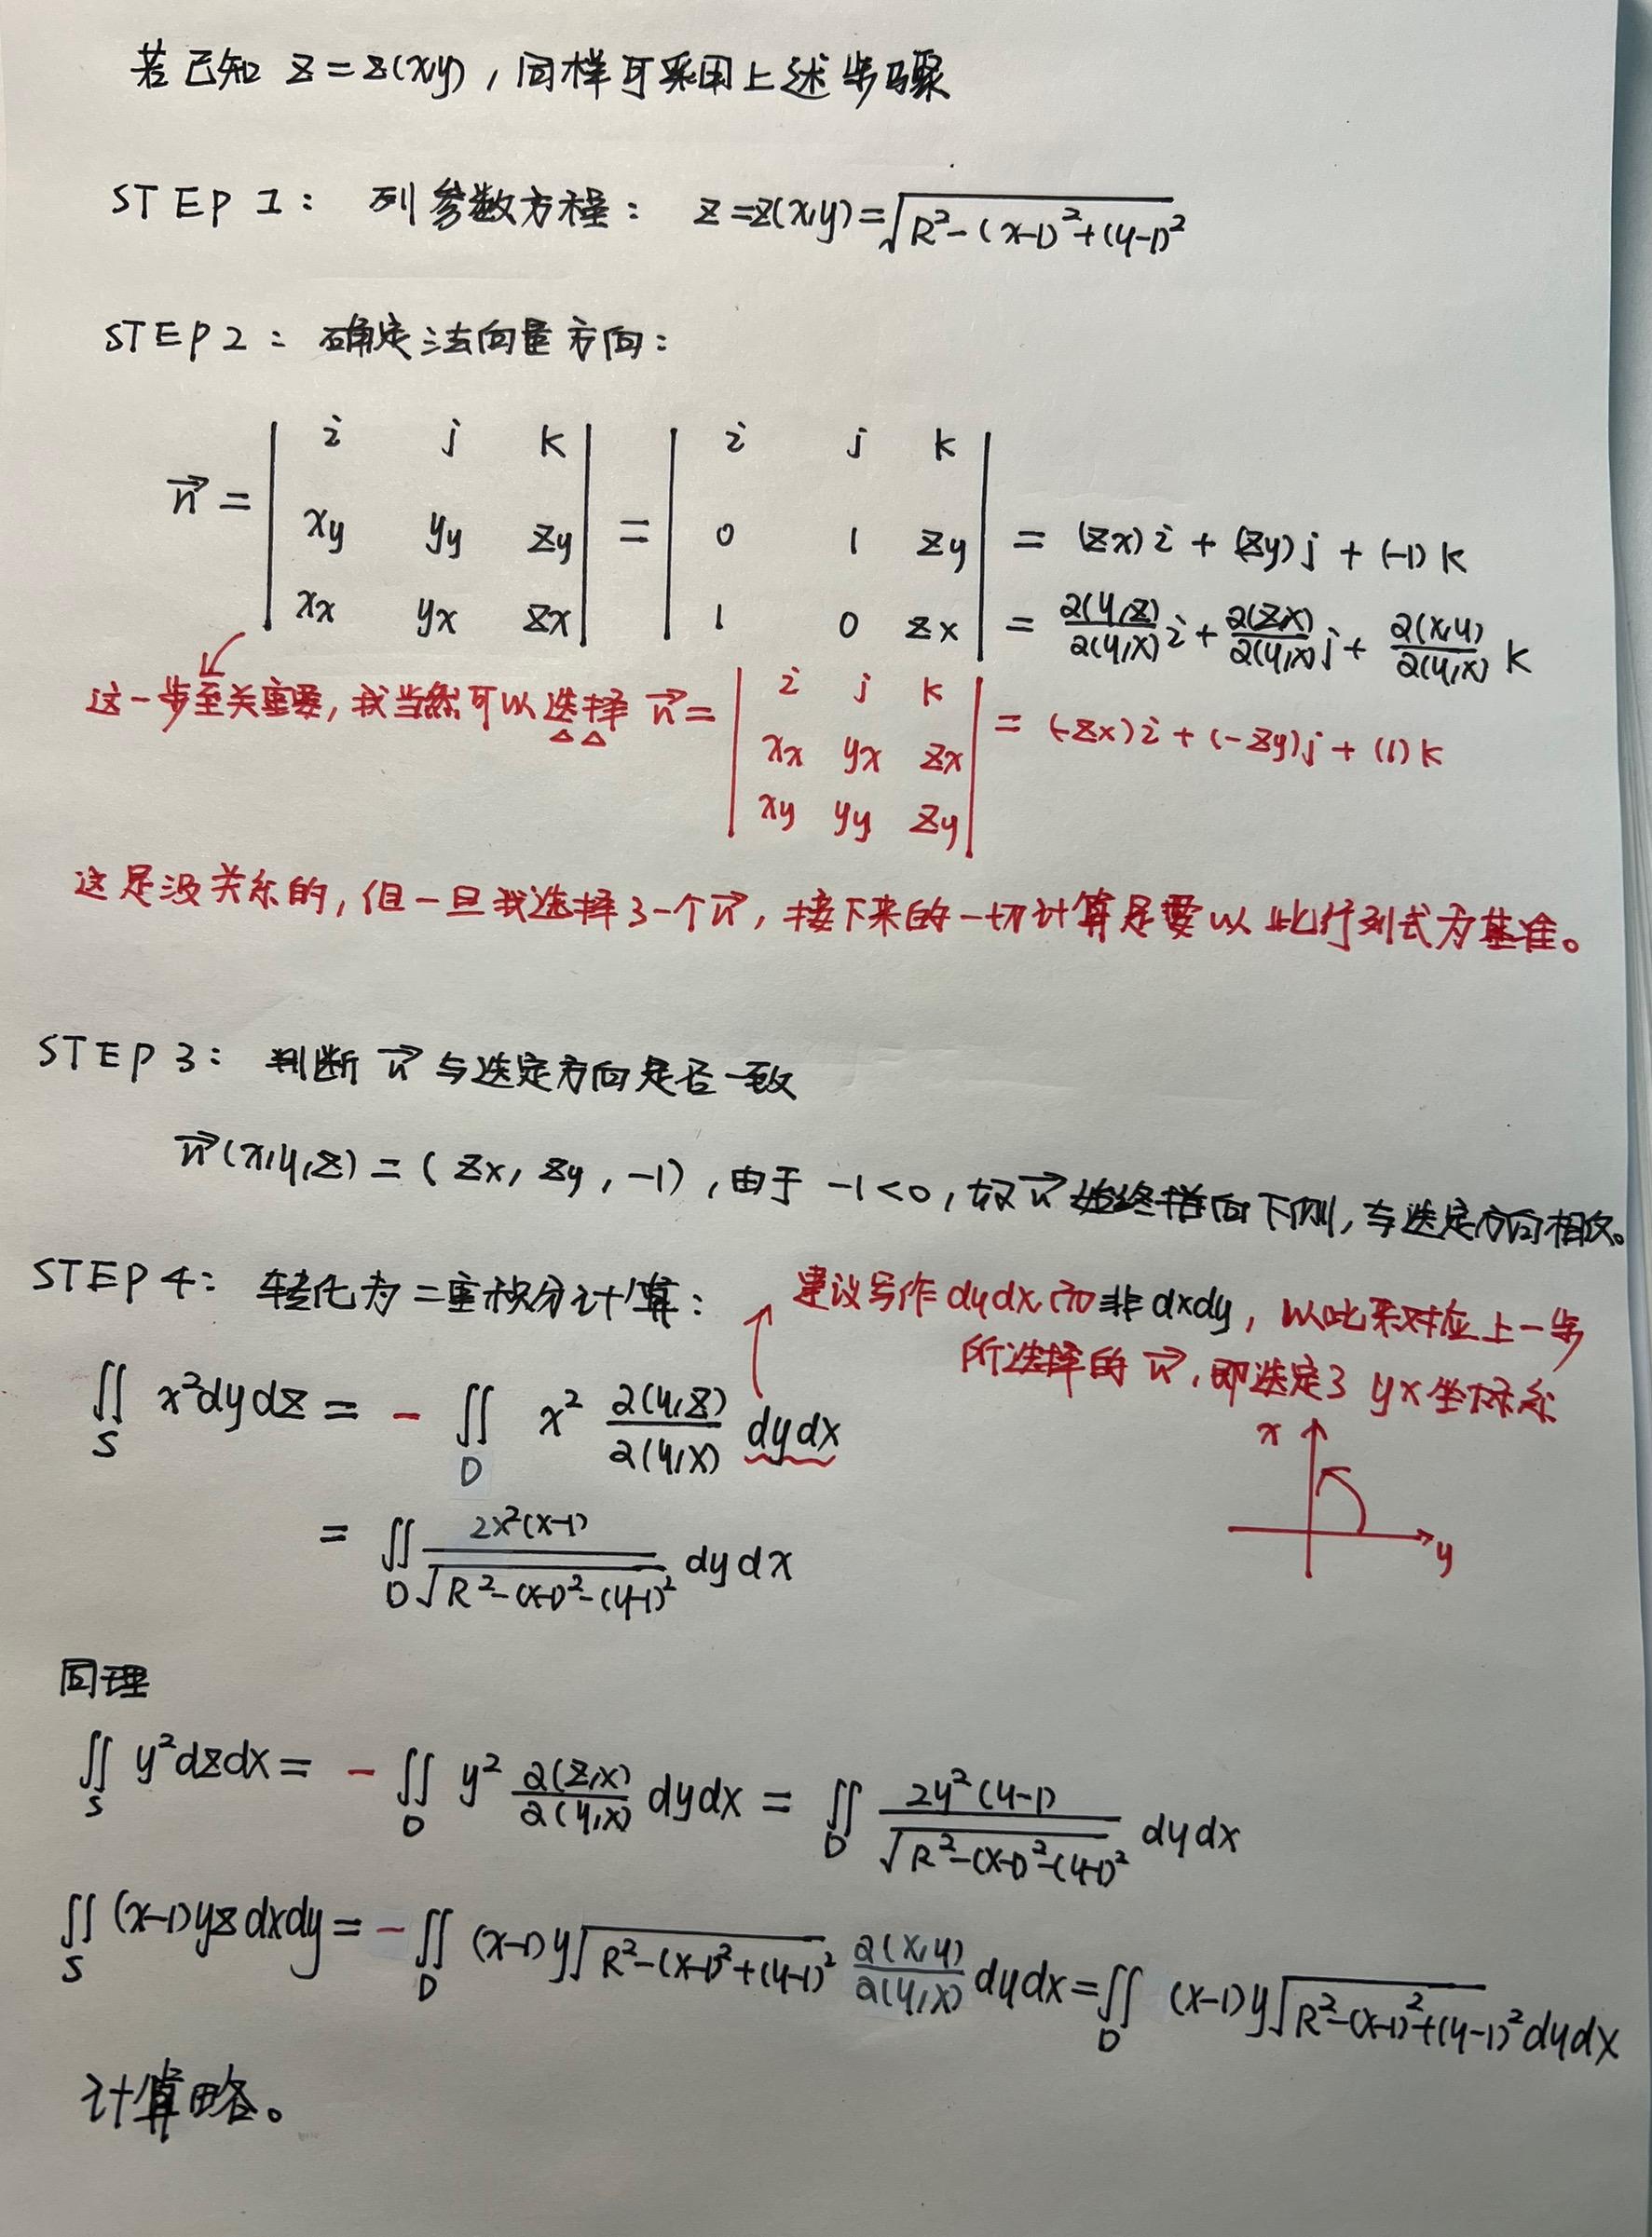 若已知 z=z(x,y)，同样可采用上述步骤
STEP 1： 列参数方程： z=z(x,y)=√R²-(x-1)²+(y-1)²
STEP 2： 确定法向量方向：
i j k i j k
n⃗ = xy yy zy = 0 1 zy = (zx)i+(zy)j+(-1)k
xx yx zx 1 0 zx = ∂(y,z)/∂(y,x) i + ∂(z,x)/∂(y,x) j + ∂(x,y)/∂(y,x) k
这一步至关重要，我当然可以选择 n⃗ = i j k = (-zx)i+(-zy)j+(1)k
xx yx zx
xy yy zy
这是没关系的，但一旦我选择了一个n⃗，接下来的一切计算是要以此行列式为基准。
STEP 3： 判断 n⃗ 与选定方向是否一致
n⃗(x,y,z)=(zx, zy, -1)，由于 -1<0，故n⃗始终指向下侧，与选定方向相反。
STEP 4： 转化为二重积分计算：
建议写作dydx而非dxdy，以此来对应上一步
所选择的 n⃗，即选定了 yx坐标系
∬S x²dydz = - ∬D x² ∂(y,z)/∂(y,x) dydx
x
y
= ∬D 2x²(x-1)/√R²-(x-1)²-(y-1)² dydx
同理
∬S y²dzdx = - ∬D y² ∂(z,x)/∂(y,x) dydx = ∬D 2y²(y-1)/√R²-(x-1)²-(y-1)² dydx
∬S (x-1)yzdxdy = - ∬D (x-1)y√R²-(x-1)²+(y-1)² ∂(x,y)/∂(y,x) dydx = ∬D (x-1)y√R²-(x-1)²+(y-1)² dydx
计算略。